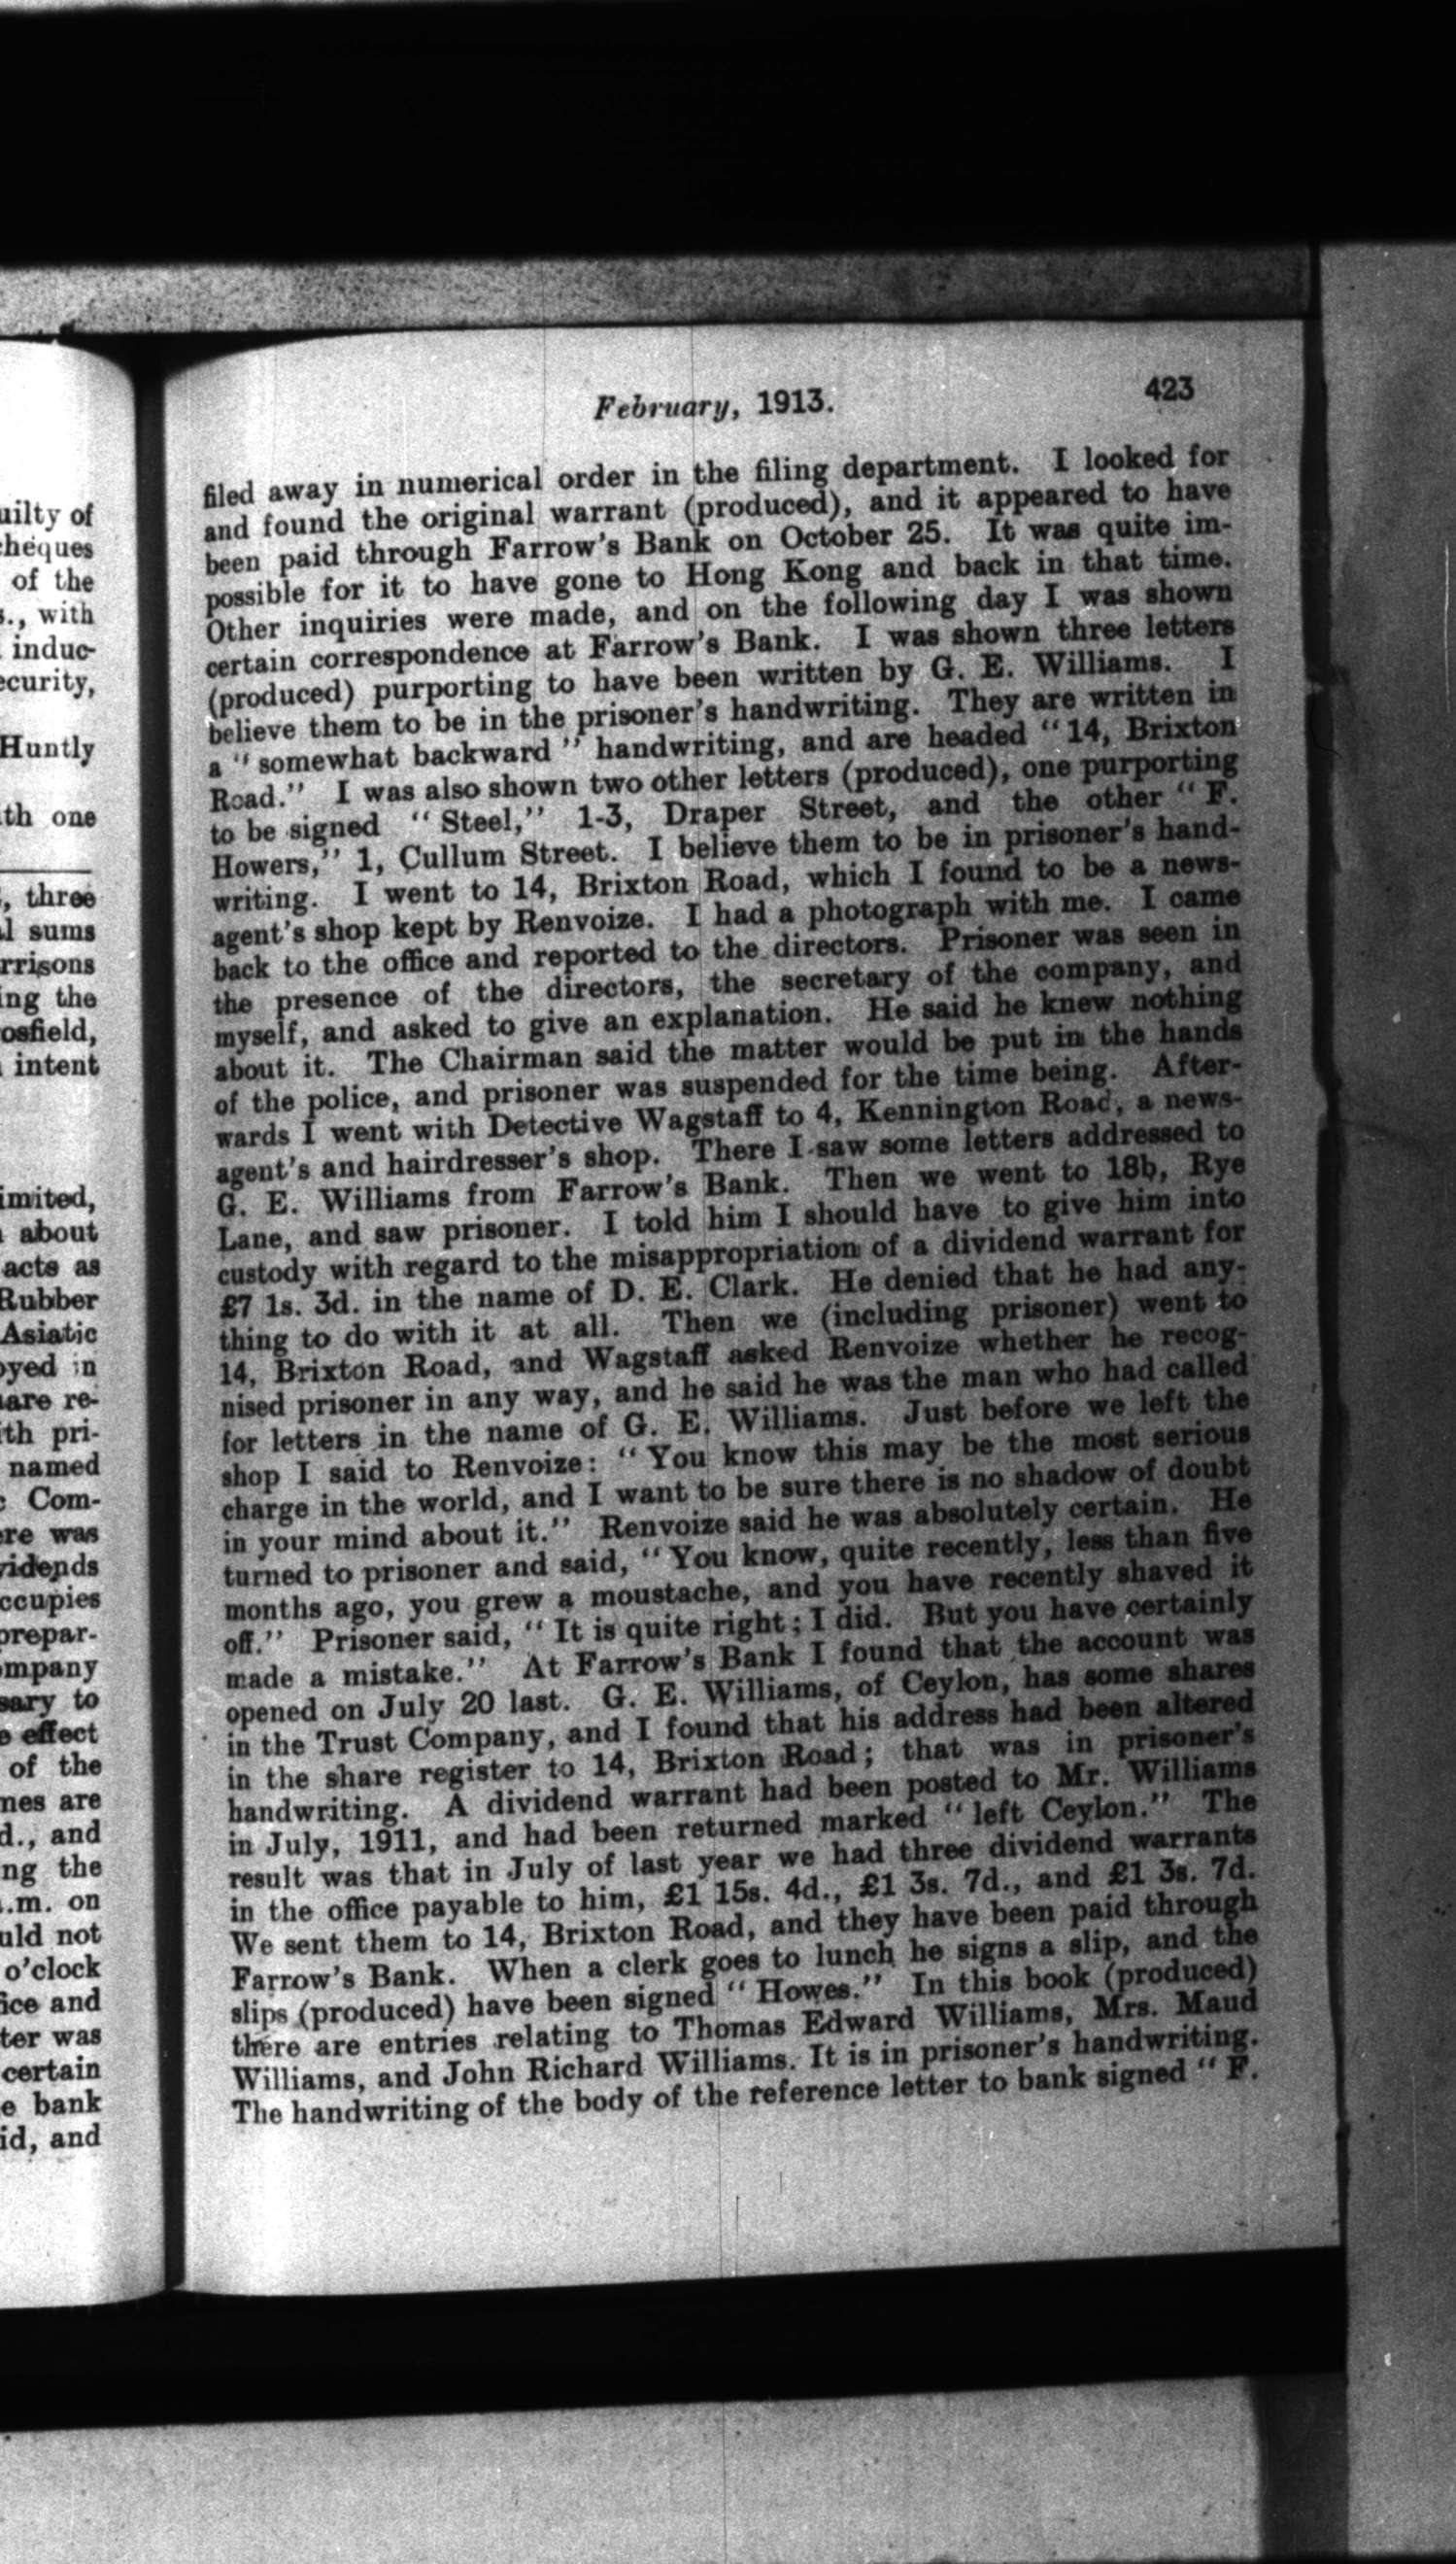 uilty of
cheques
of the
s., with
induc-
ecurity,
Huntly
th one
, three
l sums
rrisons
ing the
osfield,
intent
imited,
about
acts as
Rubber
Asiatic
oyed in
are re-
th pri-
named
Com-
ere was
vidends
ccupies
prepar-
ompany
sary to
e effect
of the
mes are
d., and
ng the
.m. on
uld not
o'clock
ice and
ter was
certain
e bank
id, and
February, 1913.
423
filed away in numerical order in the filing department. I looked for
and found the original warrant (produced), and it appeared to have
been paid through Farrow's Bank on October 25. It was quite im-
possible for it to have gone to Hong Kong and back in that time.
Other inquiries were made, and on the following day I was shown
certain correspondence at Farrow's Bank. I was shown three letters
(produced) purporting to have been written by G. E. Williams. I
believe them to be in the prisoner's handwriting. They are written in
a "somewhat backward" handwriting, and are headed "14, Brixton
Road." I was also shown two other letters (produced), one purporting
to be signed "Steel," 1-3, Draper Street, and the other "F.
Howers," 1, Cullum Street. I believe them to be in prisoner's hand-
writing. I went to 14, Brixton Road, which I found to be a news-
agent's shop kept by Renvoize. I had a photograph with me. I came
back to the office and reported to the directors. Prisoner was seen in
the presence of the directors, the secretary of the company, and
myself, and asked to give an explanation. He said he knew nothing
about it. The Chairman said the matter would be put in the hands
of the police, and prisoner was suspended for the time being. After-
wards I went with Detective Wagstaff to 4, Kennington Road, a news-
agent's and hairdresser's shop. There I saw some letters addressed to
G. E. Williams from Farrow's Bank. Then we went to 18b, Rye
Lane, and saw prisoner. I told him I should have to give him into
custody with regard to the misappropriation of a dividend warrant for
£7 1s. 3d. in the name of D. E. Clark. He denied that he had any-
thing to do with it at all. Then we (including prisoner) went to
14, Brixton Road, and Wagstaff asked Renvoize whether he recog-
nised prisoner in any way, and he said he was the man who had called
for letters in the name of G. E. Williams. Just before we left the
shop I said to Renvoize: "You know this may be the most serious
charge in the world, and I want to be sure there is no shadow of doubt
in your mind about it." Renvoize said he was absolutely certain. He
turned to prisoner and said, "You know, quite recently, less than five
months ago, you grew a moustache, and you have recently shaved it
off." Prisoner said, "It is quite right; I did. But you have certainly
made a mistake." At Farrow's Bank I found that the account was
opened on July 20 last. G. E. Williams, of Ceylon, has some shares
in the Trust Company, and I found that his address had been altered
in the share register to 14, Brixton Road; that was in prisoner's
handwriting. A dividend warrant had been posted to Mr. Williams
in July, 1911, and had been returned marked "left Ceylon." The
result was that in July of last year we had three dividend warrants
in the office payable to him, £1 15s. 4d., £1 3s. 7d., and £1 3s. 7d.
We sent them to 14, Brixton Road, and they have been paid through
Farrow's Bank. When a clerk goes to lunch he signs a slip, and the
slips (produced) have been signed "Howes." In this book (produced)
there are entries relating to Thomas Edward Williams, Mrs. Maud
Williams, and John Richard Williams. It is in prisoner's handwriting.
The handwriting of the body of the reference letter to bank signed "F.